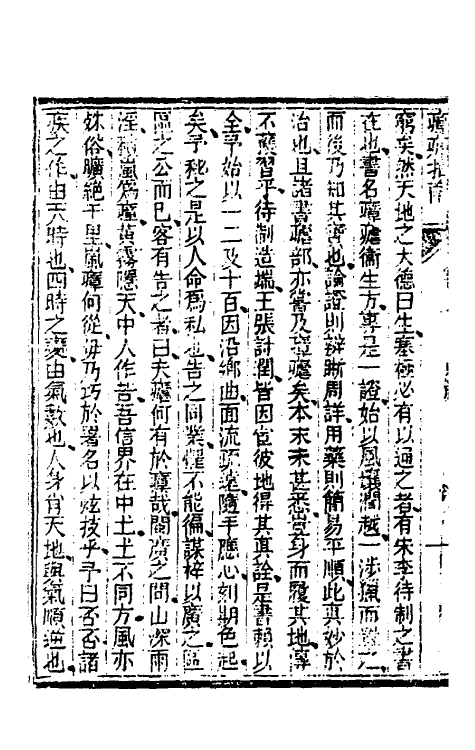 瘴瘧指南
窮矣然天地之大德曰生塞極必有以通之者有宋李待制之書
在也書名瘴瘧衞生方專是一證始以風壤濶越一涉獵而置之
而後乃知其害也論證則辨晰周詳用藥則簡易平順此真妙於
治也且諸書瘧部亦嘗及瘴瘧矣本末未甚悉豈身而履其地專
不舊習乎待制造瑞王張討潤皆因宦彼地得其真詮是書賴以
全予始以一二及十百因沿鄉也面流疏遠隨手應心刻期色起
矣予秘之是以人命爲私也告之同業僅不能徧謀梓以廣之區
區之公而已客有告之者曰夫瘧何有於瘴哉閩廣之間山深雨
淫積嵐爲瘴黃霧隱天中人作咎吾信界在中土土不同方風亦
殊俗曠絶千里嵐瘴何從毋乃巧於署名以炫技乎予曰否否諸
疾之作由天時也四時之變由氣數也人身肖天地與氣順逆也